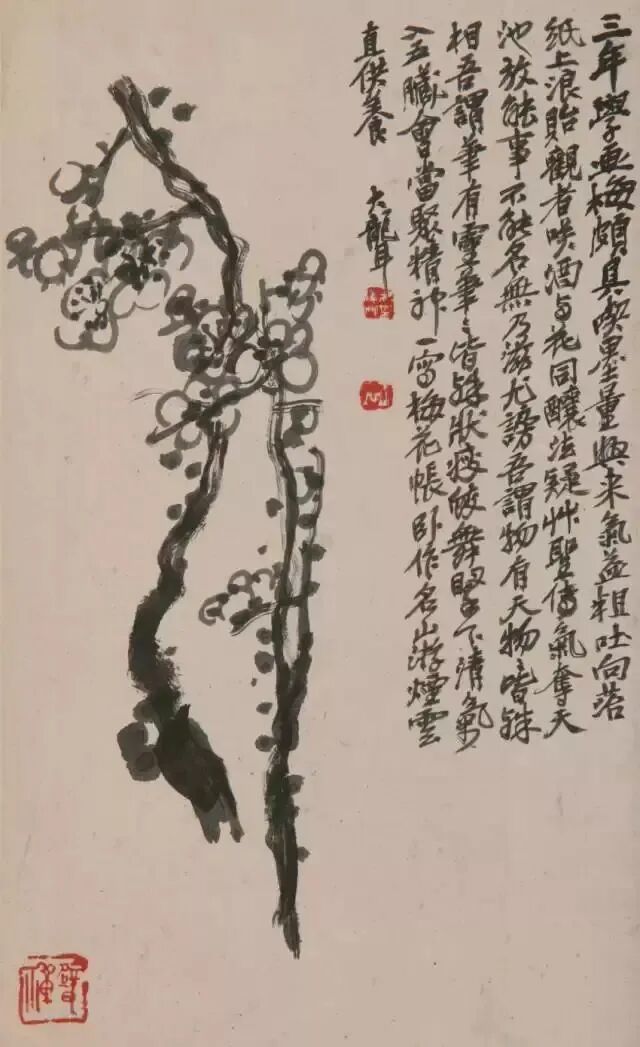 三年學畫梅頗具喫墨量興来氣益粗吐向苔
紙上浪貽觀者咲酒与花同釀法疑艸聖傳氣奪天
池放能事不能名無乃滋尤謗吾謂物有天物〻皆殊
相吾謂筆有靈筆〻皆殊狀瘦蛟舞壑下清氣
入五臟會當聚精神一寫梅花帳卧作名山游煙雲
真供養
大聾